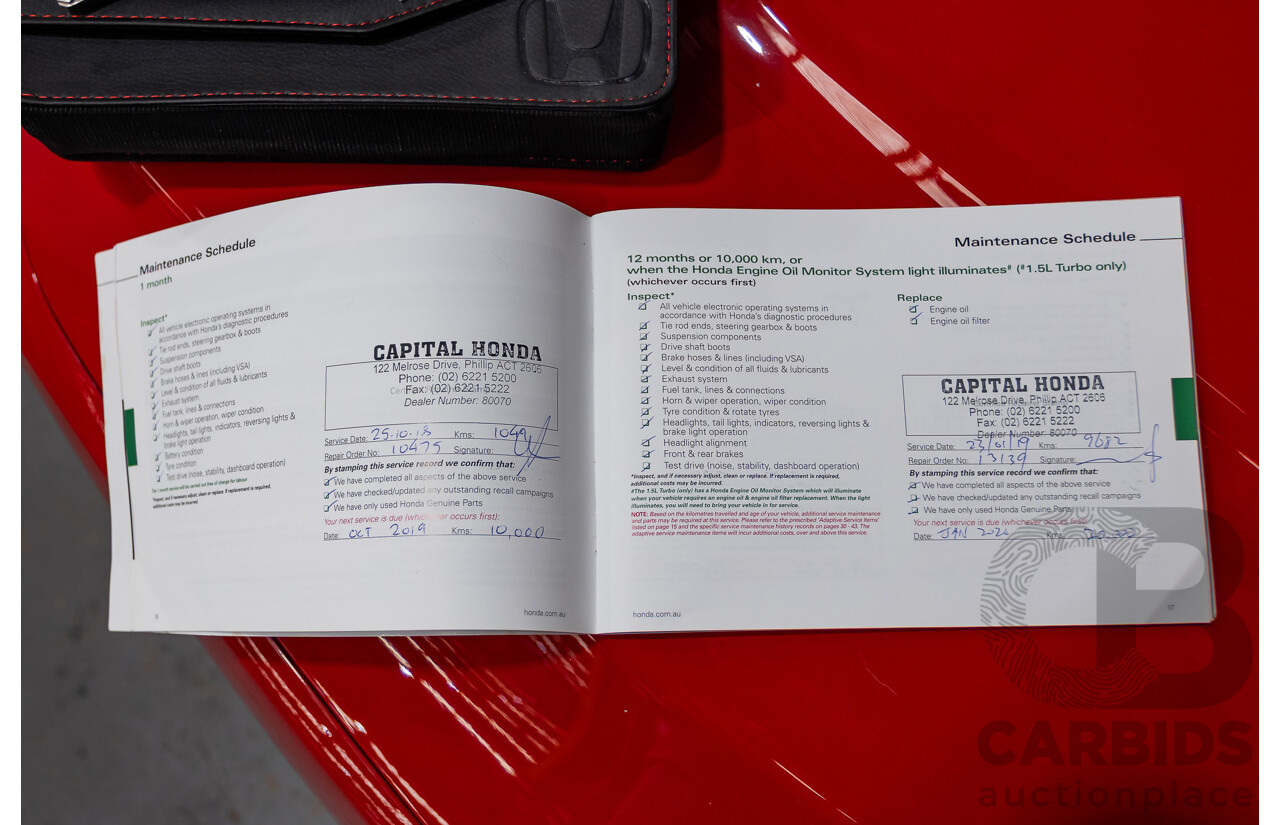 Maintenance Schedule
1 month
Inspect*
All vehicle electronic operating systems in
accordance with Honda's diagnostic procedures
Tie rod ends, steering gearbox & boots
Suspension components
Drive shaft boots
Brake hoses & lines (including VSA)
Level & condition of all fluids & lubricants
Exhaust system
Fuel tank, lines & connections
Horn & wiper operation, wiper condition
Headlights, tail lights, indicators, reversing lights &
brake light operation
Battery condition
Tyre condition
Test drive (noise, stability, dashboard operation)
The 1 month service will be carried out free of charge for labour
*Inspect, and if necessary adjust, clean or replace. If replacement is required,
additional costs may be incurred
CAPITAL HONDA
122 Melrose Drive, Phillip ACT 2606
Phone: (02) 6221 5200
Fax: (02) 6221 5222
Dealer Number: 80070
Service Date: 25-10-18 Kms: 1049
Repair Order No: 10475 Signature:
By stamping this service record we confirm that:
We have completed all aspects of the above service
We have checked/updated any outstanding recall campaigns
We have only used Honda Genuine Parts
Your next service is due (whichever occurs first):
Date: OCT 2019 Kms: 10,000
honda.com.au
Maintenance Schedule
12 months or 10,000 km, or
when the Honda Engine Oil Monitor System light illuminates# (#1.5L Turbo only)
(whichever occurs first)
Inspect*
All vehicle electronic operating systems in
accordance with Honda's diagnostic procedures
Tie rod ends, steering gearbox & boots
Suspension components
Drive shaft boots
Brake hoses & lines (including VSA)
Level & condition of all fluids & lubricants
Exhaust system
Fuel tank, lines & connections
Horn & wiper operation, wiper condition
Tyre condition & rotate tyres
Headlights, tail lights, indicators, reversing lights &
brake light operation
Headlight alignment
Front & rear brakes
Test drive (noise, stability, dashboard operation)
*Inspect, and if necessary adjust, clean or replace. If replacement is required,
additional costs may be incurred.
#The 1.5L Turbo (only) has a Honda Engine Oil Monitor System which will illuminate
when your vehicle requires an engine oil & engine oil filter replacement. When the light
illuminates, you will need to bring your vehicle in for service.
NOTE: Based on the kilometres travelled and age of your vehicle, additional service maintenance
and parts may be required at this service. Please refer to the prescribed 'Adaptive Service Items'
listed on page 15 and the specific service maintenance history records on pages 30 - 43. The
adaptive service maintenance items will incur additional costs, over and above this service.
Replace
Engine oil
Engine oil filter
CAPITAL HONDA
122 Melrose Drive, Phillip ACT 2606
Phone: (02) 6221 5200
Fax: (02) 6221 5222
Dealer Number: 80070
Service Date: 23/01/19 Kms: 9682
Repair Order No: 13139 Signature:
By stamping this service record we confirm that:
We have completed all aspects of the above service
We have checked/updated any outstanding recall campaigns
We have only used Honda Genuine Parts
Your next service is due (whichever occurs first):
Date: JAN 2020 Kms: 20,000
honda.com.au
17
CARBIDS
auctionplace